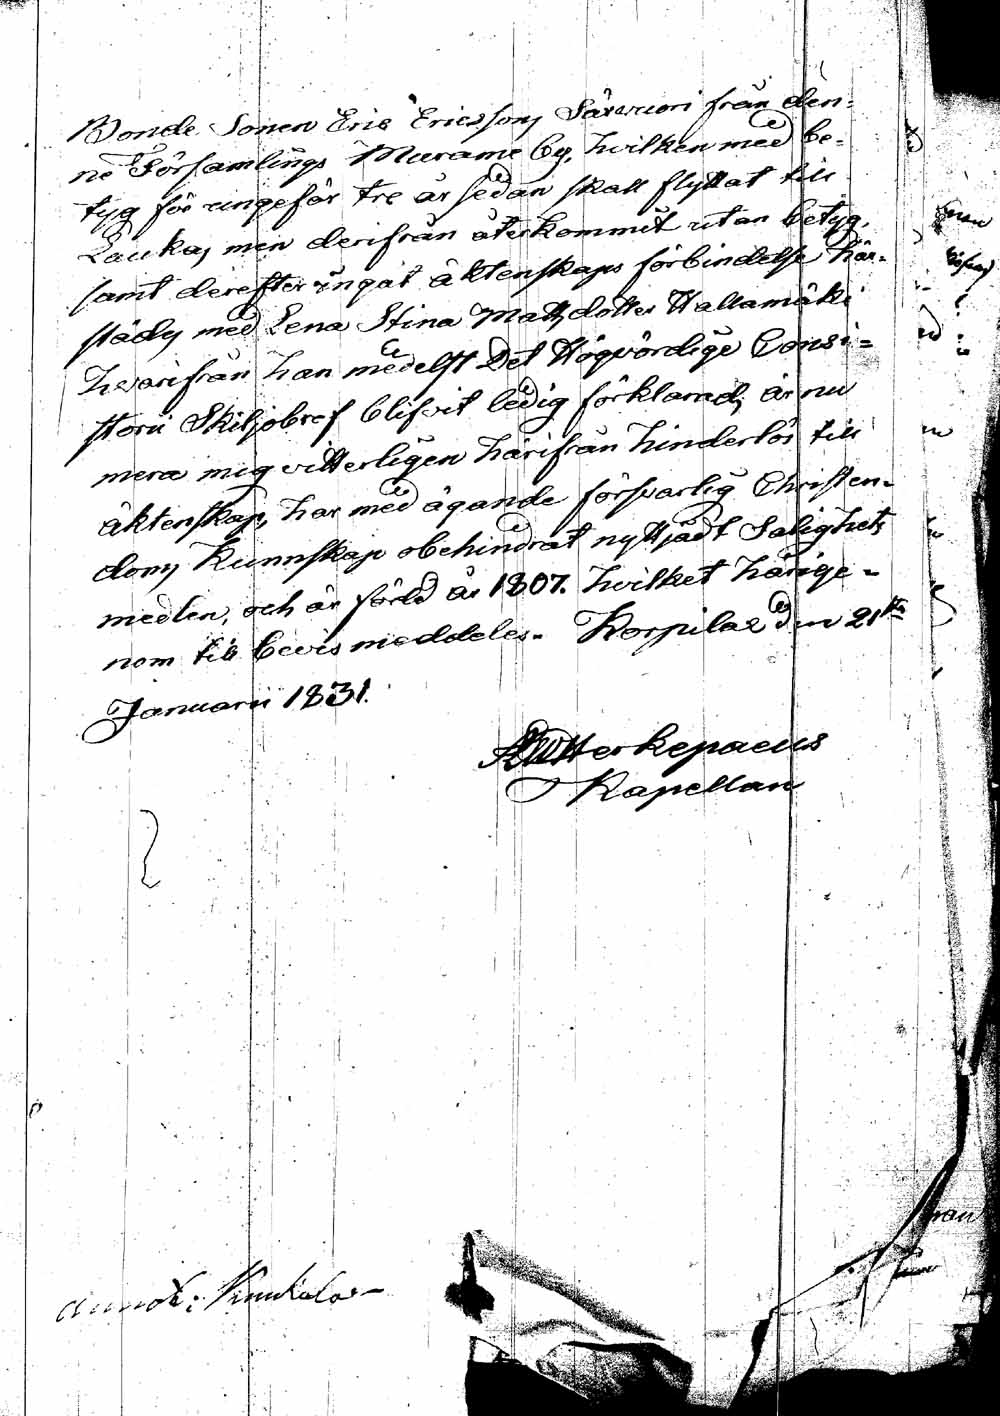 Bonde Sonen Eric Ericsson Särvuori från den=
ne Församlings Murame by, hvilken med be=
tyg för ungefär tre år sedan skall flyttat till
Lauka, men derifrån återkommit utan betyg,
samt derefter ingåt äktenskaps förbindelse här=
städes med Lena Stina Mattsdotter Hallamäki
hvarifrån han medelst Det Högvördige Consi=
storii Skiljobref blifvit ledig förklarad, är nu
mera mig vitterligen härifrån hinderlös till
äktenskap, har med ägande försvarlig Christen=
doms Kunnskap obehindrat nyttjadt Salighets
medlen, och är född år 1807. hvilket härige=
nom till bevis meddeles. Korpilax den 21ta
Januarii 1831.
Wetterkepaeus
Kapellan
annot: